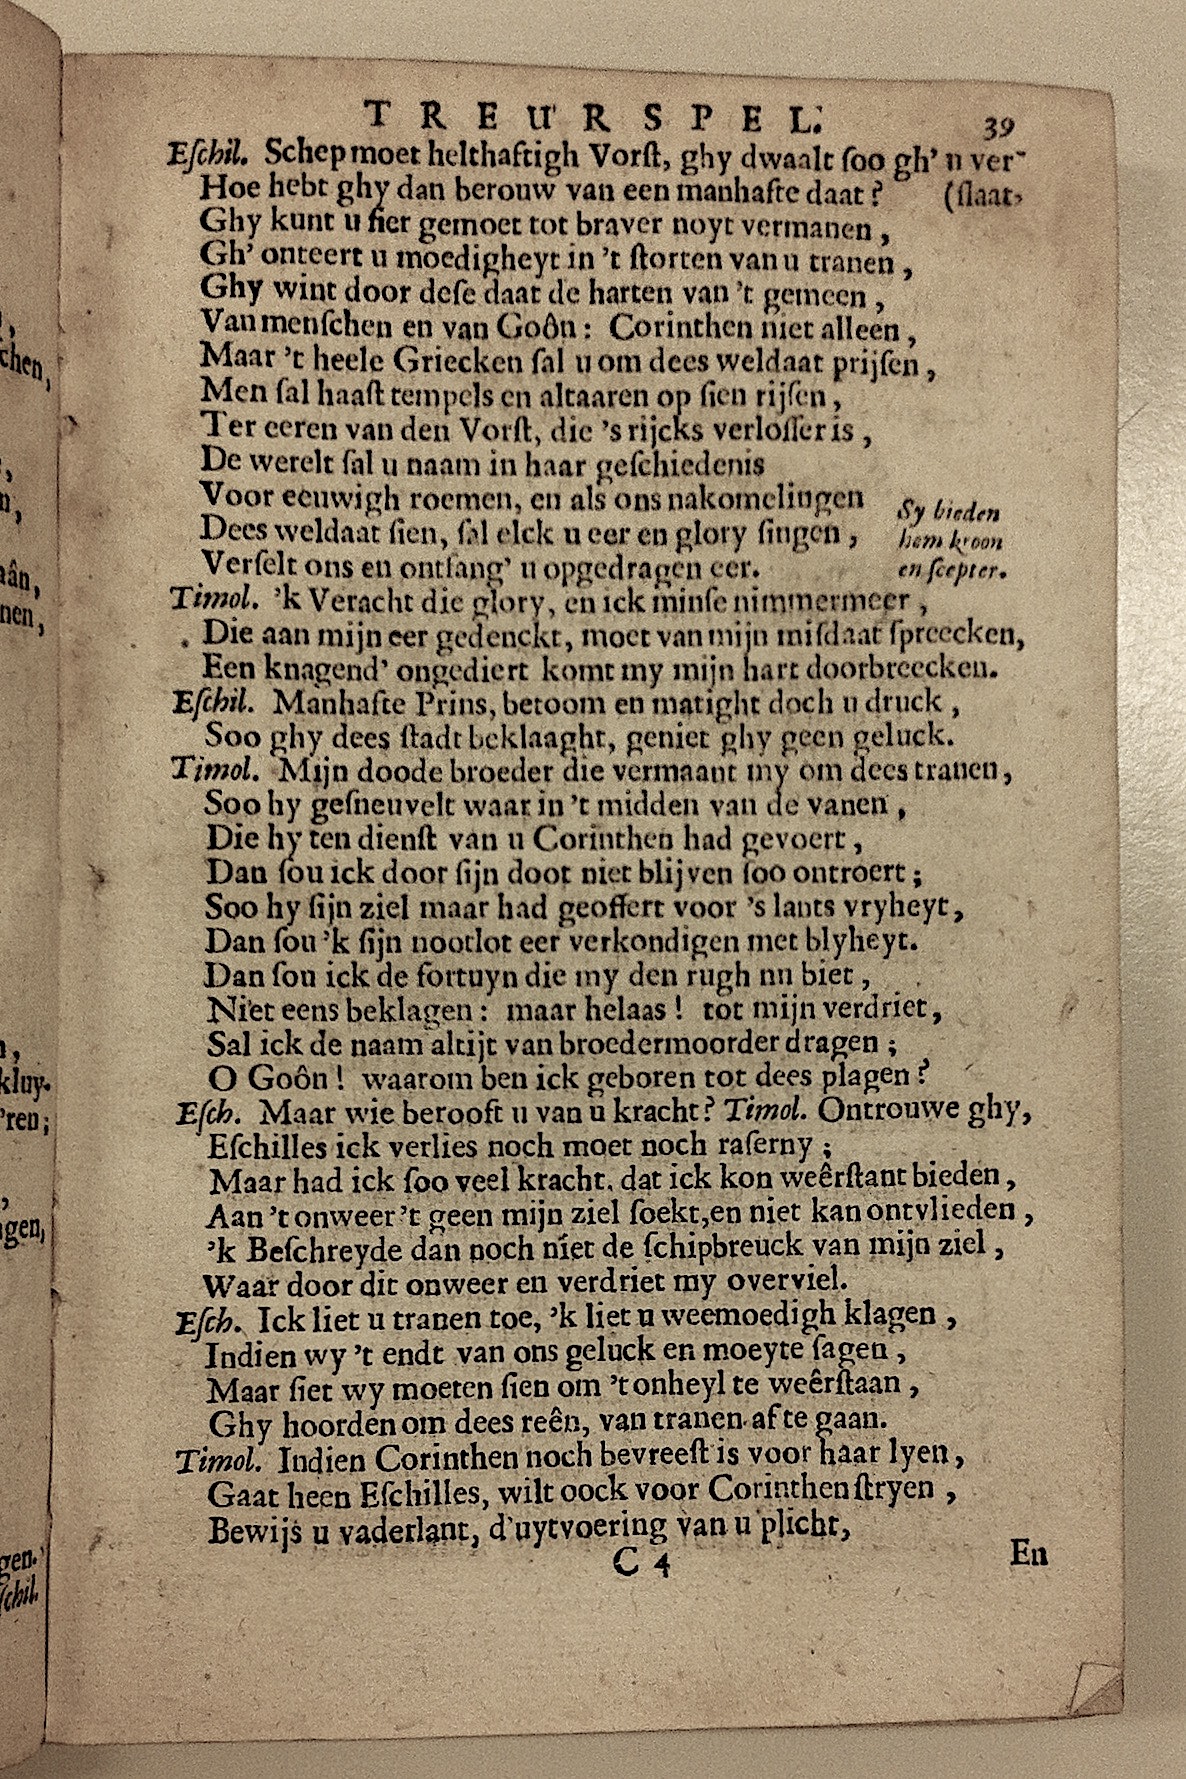 TREURSPEL. 39
Eſchil. Schep moet helthaftigh Vorſt, ghy dwaalt ſoo gh' u ver-
Hoe hebt ghy dan berouw van een manhafte daat? (ſlaat,
Ghy kunt u fier gemoet tot braver noyt vermanen,
Gh' onteert u moedigheyt in 't ſtorten van u tranen,
Ghy wint door deſe daat de harten van 't gemeen,
Van menſchen en van Goôn: Corinthen niet alleen,
Maar 't heele Griecken ſal u om dees weldaat prijſen,
Men ſal haaſt tempels en altaaren op ſien rijſen,
Ter eeren van den Vorſt, die 's rijcks verloſſer is,
De werelt ſal u naam in haar geſchiedenis
Voor eeuwigh roemen, en als ons nakomelingen
Dees weldaat ſien, ſal elck u eer en glory ſingen,
Verſelt ons en ontfang' u opgedragen eer.
Sy bieden
hem kroon
en ſcepter.
Timol. 'k Veracht die glory, en ick minſe nimmermeer,
Die aan mijn eer gedenckt, moet van mijn miſdaat ſpreecken,
Een knagend' ongediert komt my mijn hart doorbreecken.
Eſchil. Manhafte Prins, betoom en matight doch u druck,
Soo ghy dees ſtadt beklaaght, geniet ghy geen geluck.
Timol. Mijn doode broeder die vermaant my om dees tranen,
Soo hy geſneuvelt waar in 't midden van de vanen,
Die hy ten dienſt van u Corinthen had gevoert,
Dan ſou ick door ſijn doot niet blijven ſoo ontroert;
Soo hy ſijn ziel maar had geoffert voor 's lants vryheyt,
Dan ſou 'k ſijn nootlot eer verkondigen met blyheyt.
Dan ſou ick de fortuyn die my den rugh nu biet,
Niet eens beklagen: maar helaas! tot mijn verdriet,
Sal ick de naam altijt van broedermoorder dragen;
O Goôn! waarom ben ick geboren tot dees plagen?
Eſch. Maar wie berooft u van u kracht? Timol. Ontrouwe ghy,
Eſchilles ick verlies noch moet noch raſerny;
Maar had ick ſoo veel kracht, dat ick kon weêrſtant bieden,
Aan 't onweer 't geen mijn ziel ſoekt, en niet kan ontvlieden,
'k Beſchreyde dan noch niet de ſchipbreuck van mijn ziel,
Waar door dit onweer en verdriet my overviel.
Eſch. Ick liet u tranen toe, 'k liet u weemoedigh klagen,
Indien wy 't endt van ons geluck en moeyte ſagen,
Maar ſiet wy moeten ſien om 't onheyl te weêrſtaan,
Ghy hoorden om dees reên, van tranen af te gaan.
Timol. Indien Corinthen noch bevreeſt is voor haar lyen,
Gaat heen Eſchilles, wilt oock voor Corinthen ſtryen,
Bewijs u vaderlant, d'uytvoering van u plicht,
C 4 En